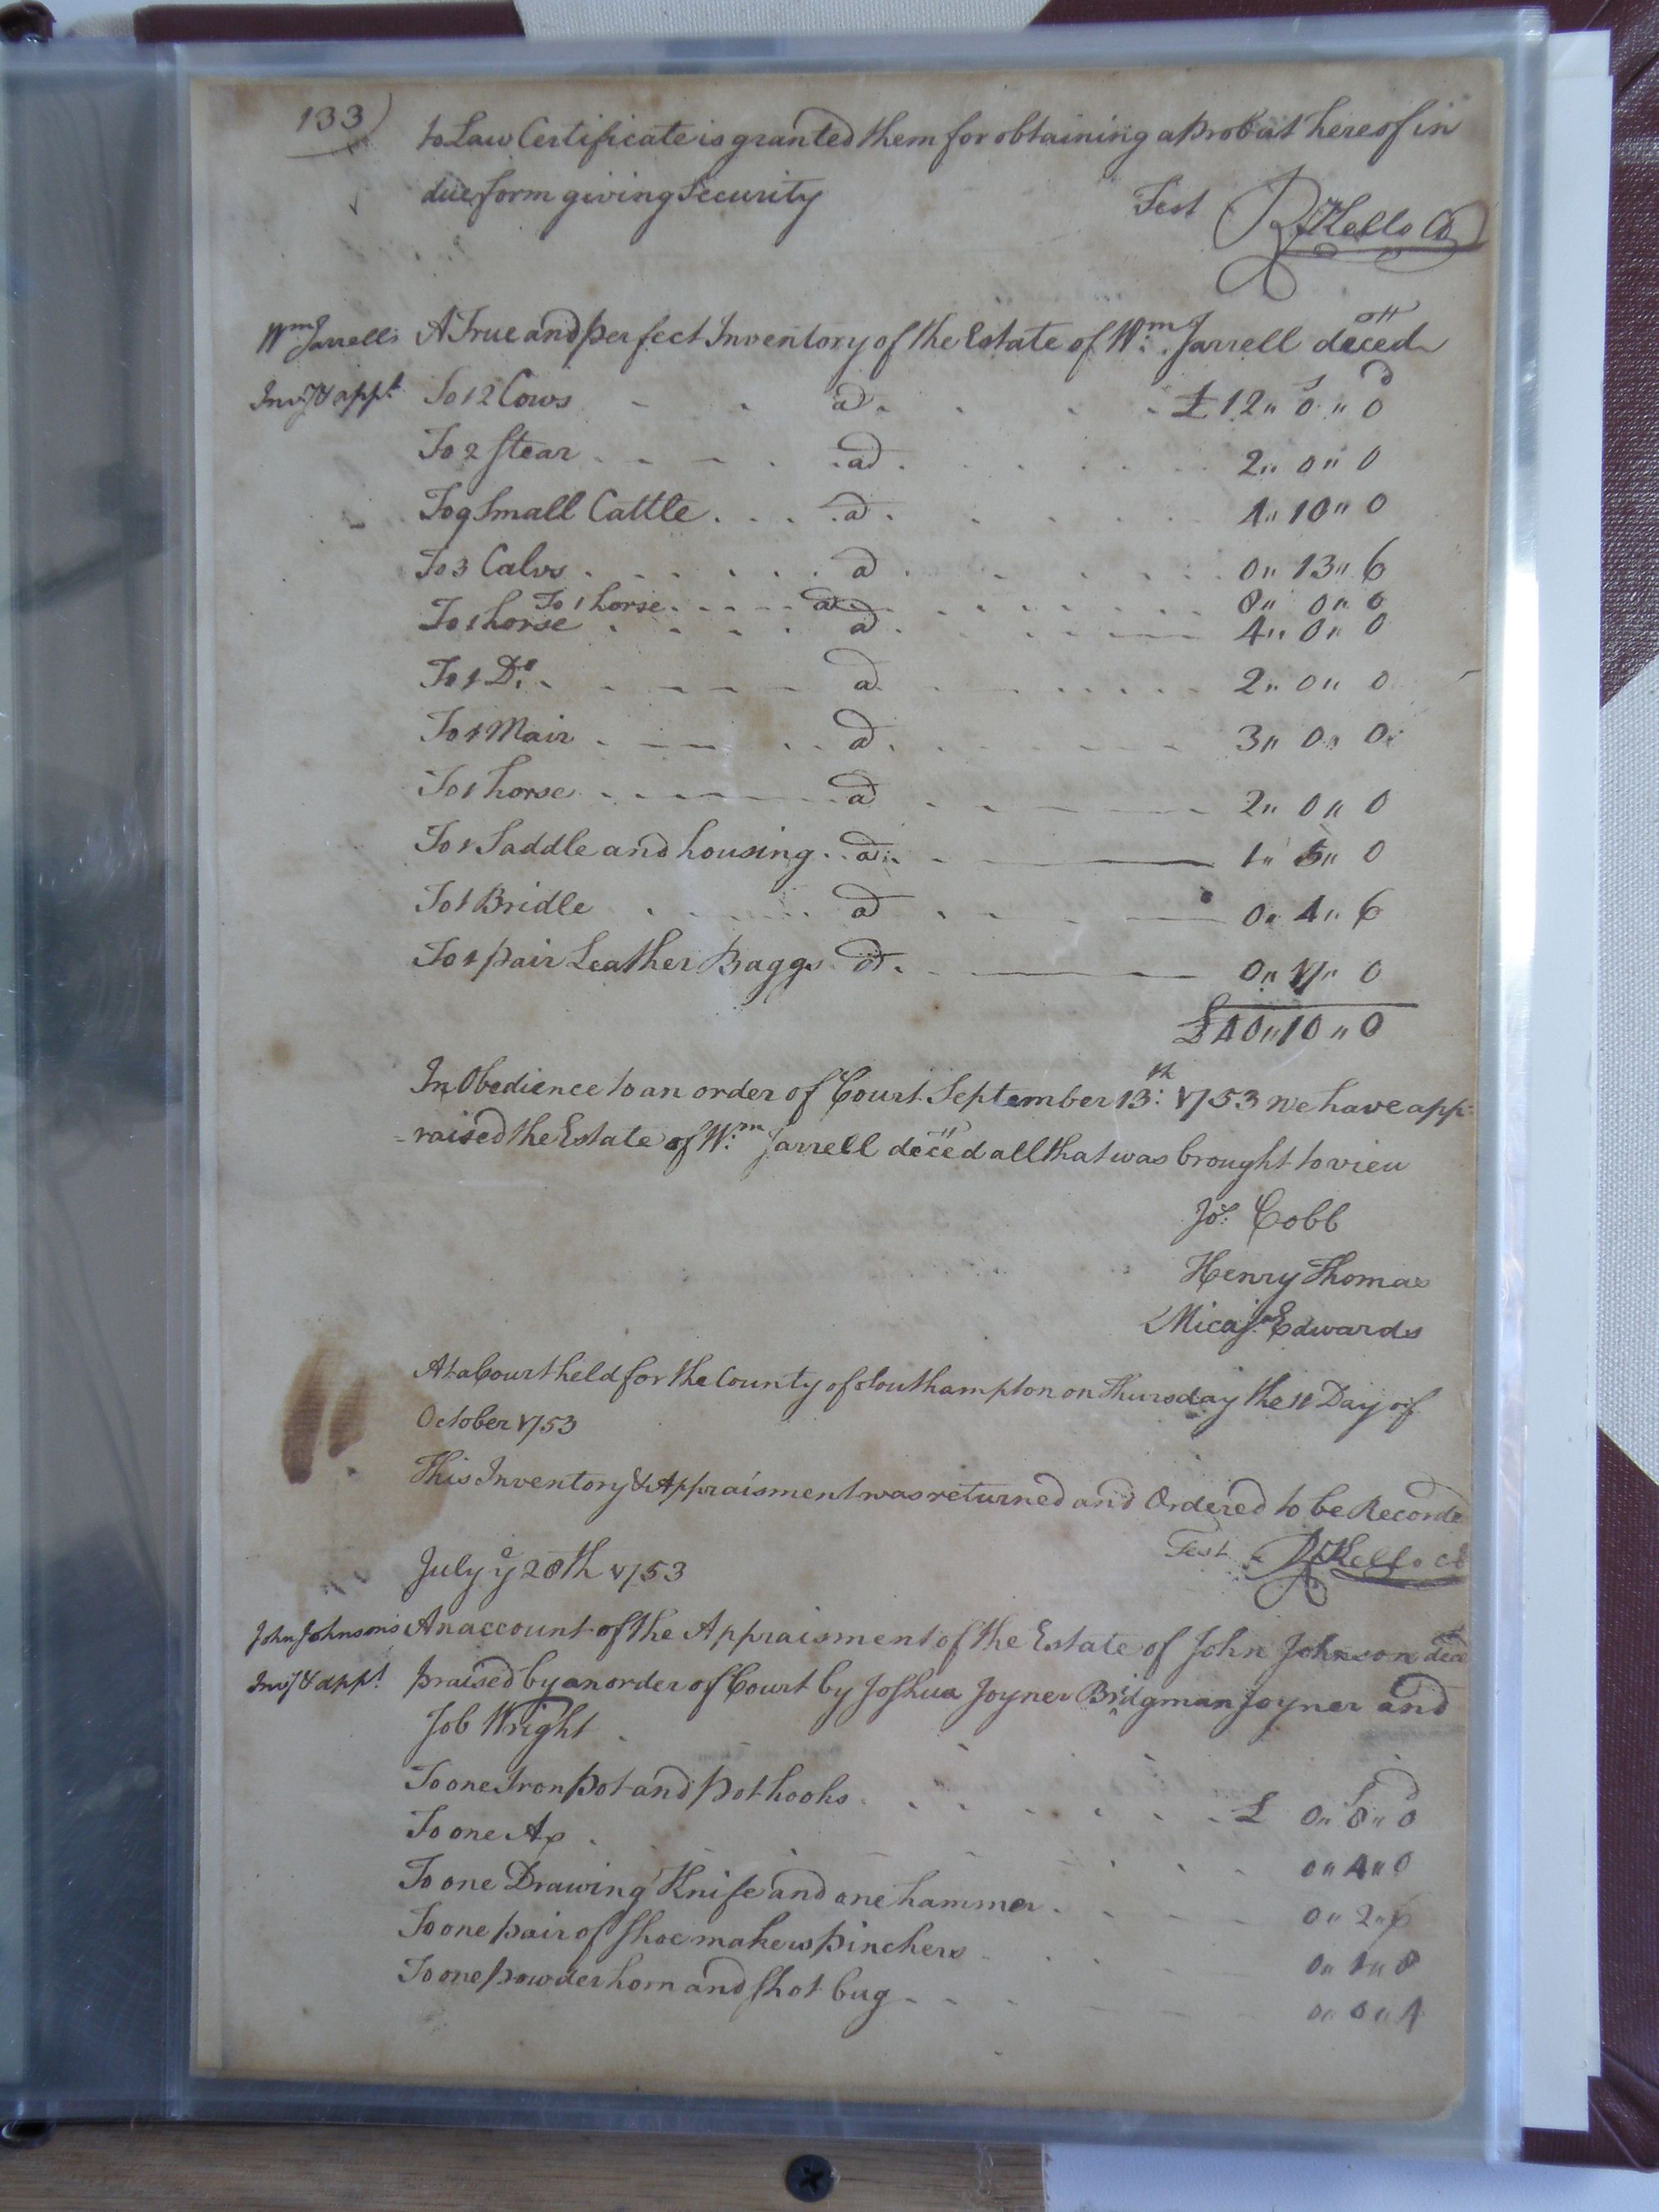 133)
to Law Certificate is granted them for obtaining a probat hereof in
due form giving Security Test RKello Cl
Wm Jarrells A True and perfect Inventory of the Estate of Wm. Jarrell deced
Invy & appt
s d
To 12 Cows - - a - - £12 " 0 " 0
To 2 Stear - - a - - 2 " 0 " 0
To 9 Small Cattle - - a - - 4 " 10 " 0
To 3 Calvs - - a - - 0 " 13 " 6
To 1 horse - - a - - 8 " 0 " 0
To 1 horse - - a - - 4 " 0 " 0
To 1 Do. - - a - - 2 " 0 " 0
To 1 Mair - - a - - 3 " 0 " 0
To 1 horse - - a - - 2 " 0 " 0
To 1 Saddle and housing - - a - - 1 " 5 " 0
To 1 Bridle - - a - - 0 " 4 " 6
To 1 pair Leather Baggs - - a - - 0 " 17 " 0
£40 " 10 " 0
In Obedience to an order of Court September 13th. 1753 we have app=
=raised the Estate of Wm. Jarrell deced all that was brought to view
Jos. Cobb
Henry Thomas
Micaj.ah Edwards
At a Court held for the County of Southampton on Thursday the 11 Day of
October 1753
This Inventory & Appraisment was returned and Ordered to be Recorde
Test RKello Cl
July ye 28th 1753
John Johnsons An account of the Appraisment of the Estate of John Johnson decd
Invy & appt praised by an order of Court by Joshua Joyner Bridgman Joyner and
Job Wright
s d
To one Iron pot and pothooks - - £ 0 " 8 " 0
To one Ax - - 0 " 4 " 0
To one Drawing Knife and one hammer - - 0 " 2 "
To one pair of Shoemakers pinchers - - 0 " 1 " 8
To one powder horn and Shot bug - - 0 " 0 " 4